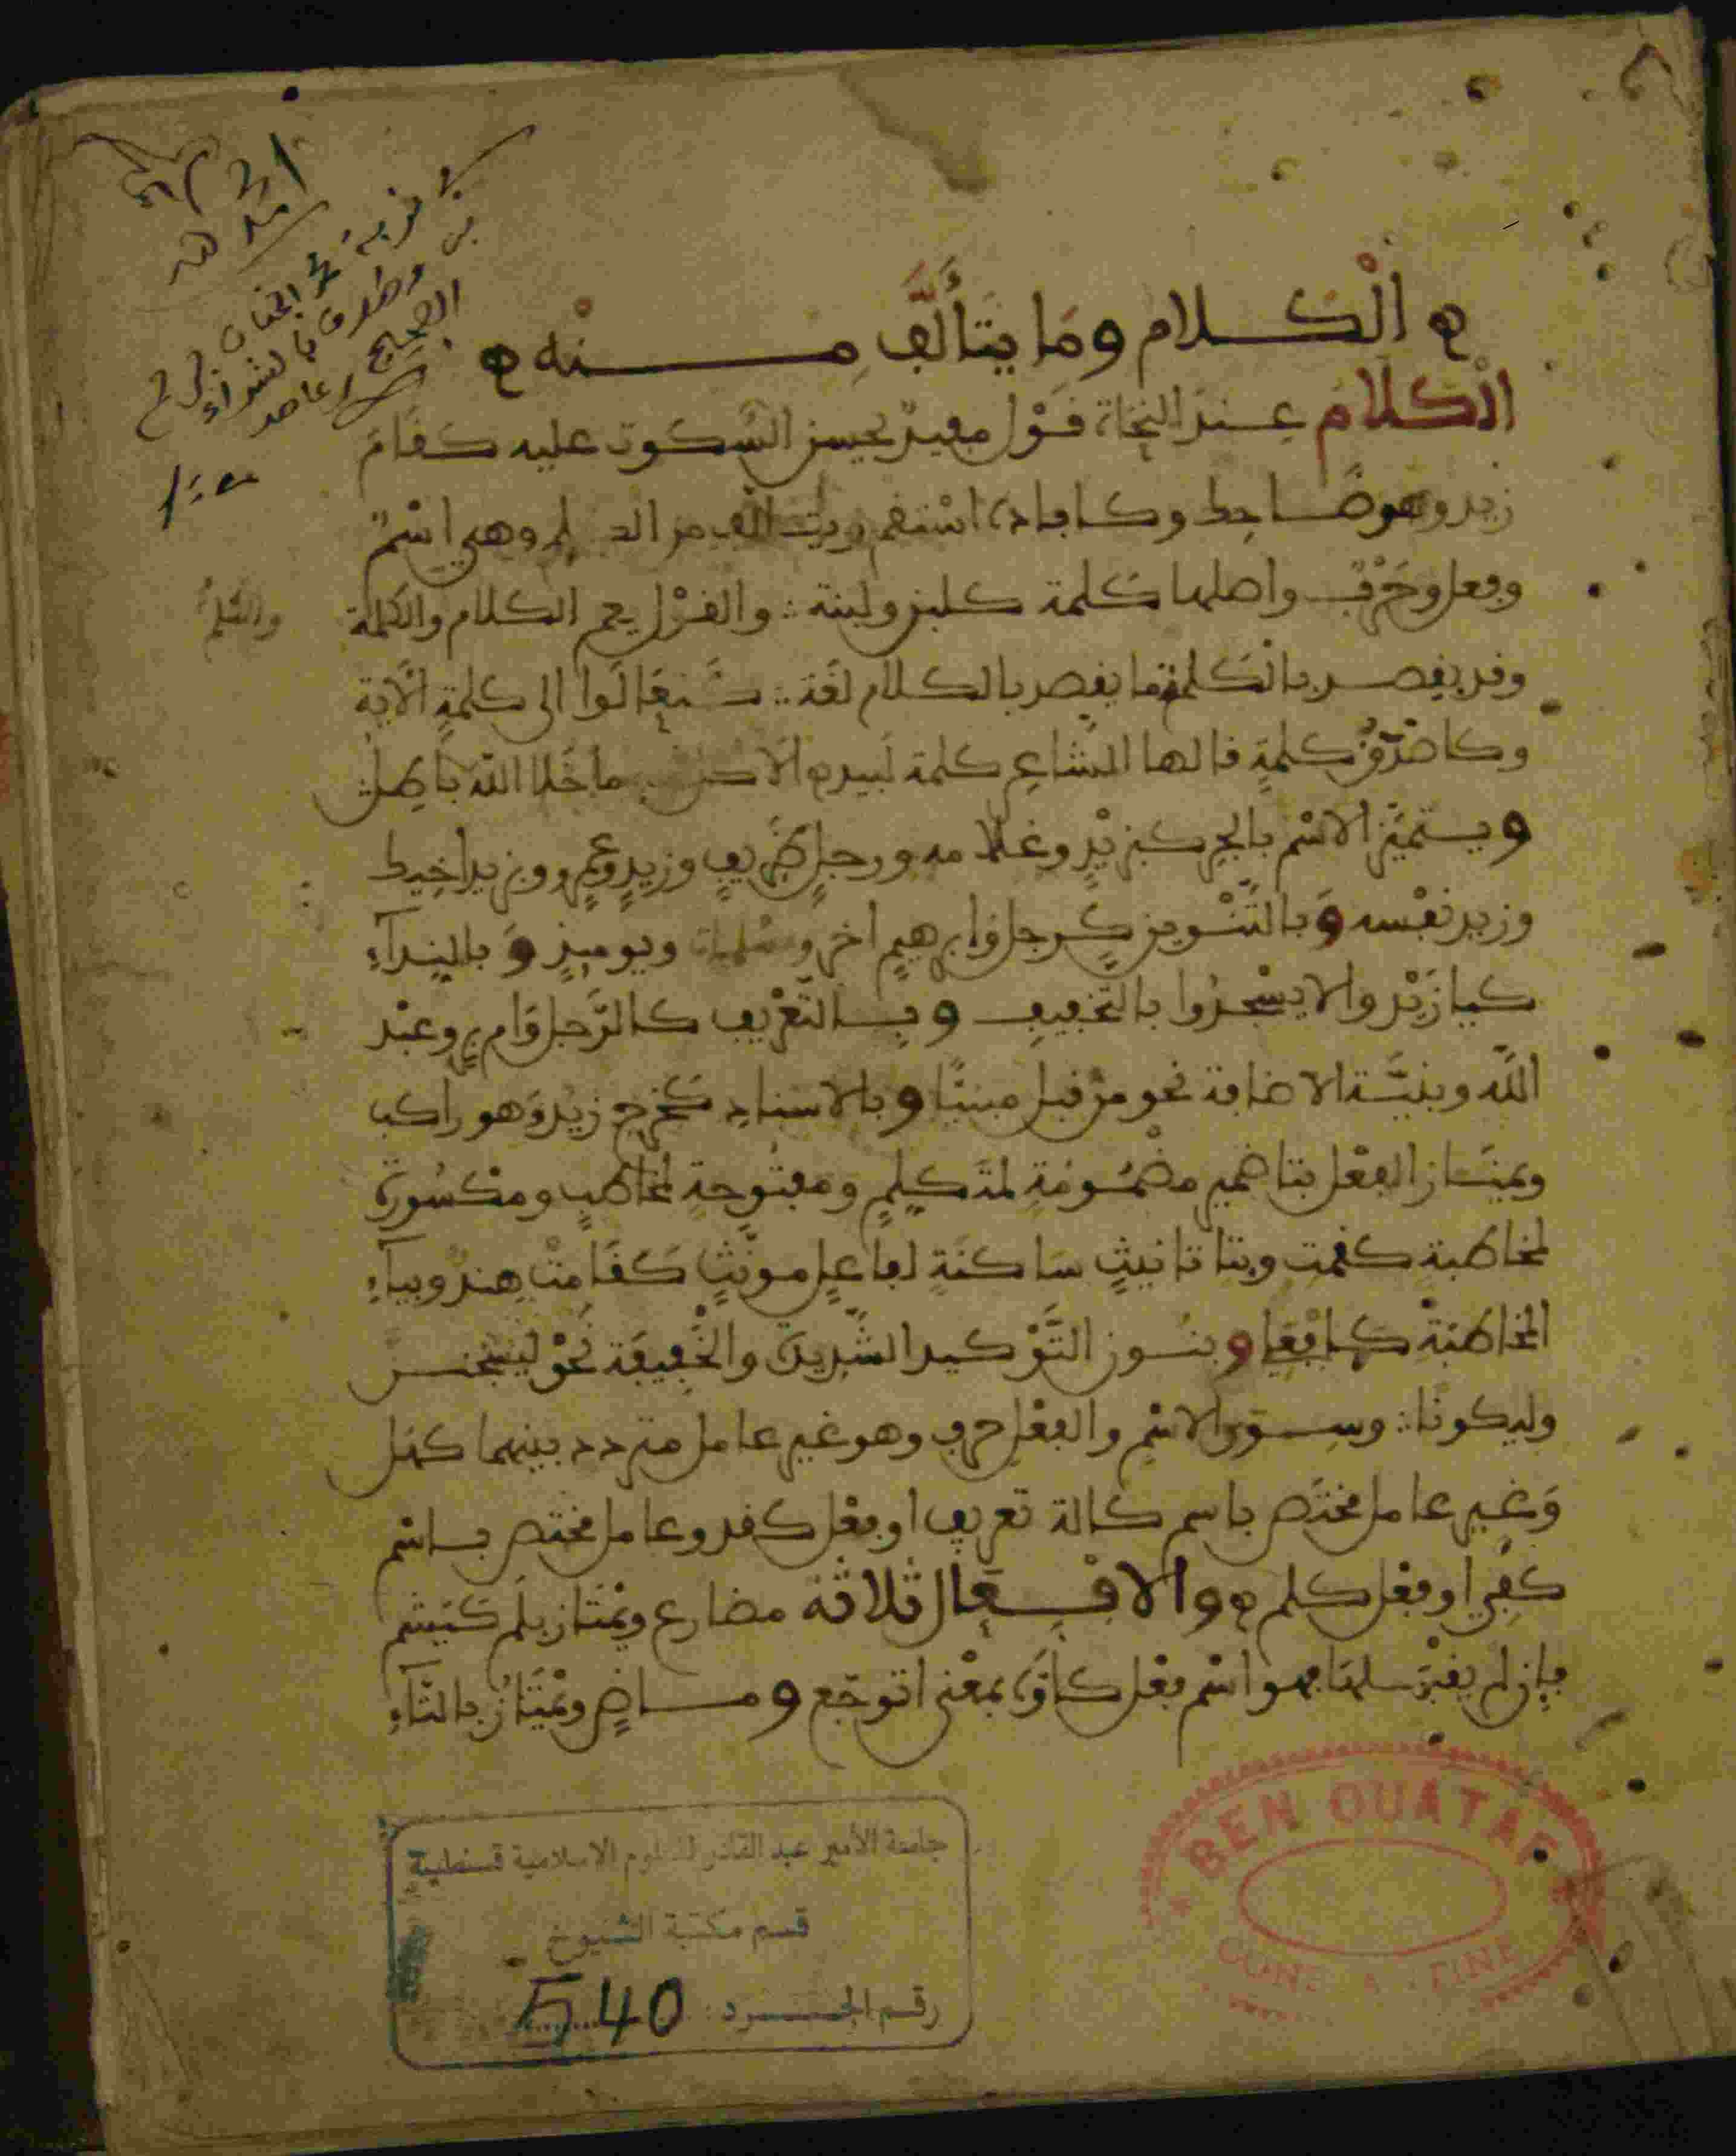 الْكلام وما يتألَّف منْه
الْكلام عند النحاة قوْل مفيد يحسن السُّكوت عليه كقام
زيد وهو ضاحك وكافادة استقم وان الف من الكلم وهي اسْم
وفعل وحَرْف واصلها كلمة كلبن ولبنة والقوْل يعم الكلام والكلمة
والكلم
وقد يقصد بالكلمة ما يقصد بالكلام لغة تعالَوا الى كلمةٍ الآية
وكاصْدَق كلمةٍ قالها الشاعر كلمة لبيد الا كل ما خلا الله باطل
ويتميَّز الاسْم بالجر كبزيْدٍ وغلامه ورجلٍ ظريفٍ وزيدٍ وعمرٍو وبزيد اخيك
وزيد نفْسه وبالتَّنْوين كرجل وابرهيمٍ اخر ومسلمات ويوميذٍ وبالندآء
كيا زيْد والا يسْجدُوا بالتَّخفيف وبالتَّعْريف كالرَّجل وامرئٍ وعبْد
الله وبنيَّة الاضافة نحو من قبل مبنيًّا وبالاسناد كخرج زيْد وَهو راكب
ويمتاز الفعْل بتا ضمير مضْمُومَةٍ لمتكلِّمٍ ومفتُوحةٍ لمخاطبٍ ومكْسُورة
لمخاطبةٍ كقمت وبتا تانيثٍ ساكنَةٍ لفاعلٍ مونَّثٍ كقَامتْ هند وبيآء
المخاطبَة كافْعَلي وبنُون التَّوْكيد الشَّديدة والخَفيفَة نحْو ليسْجننَّ
وليكونًا وسوى الاسْم والفعْل حرف وهو غير عامل متردد بينهما كهل
وَغير عامل مختَص باسم كالة تعريف او بفعْل كقد وعامل مختص باسْم
كفي او بفعْل كلم والافعَال ثلاثة مضارع ويمْتاز بلَم كيَشم
فإن لم يقبَلها فهو اسْم فعْل كأوَّه بمعْنى اتوجَّع وماضٍ ويمْتَازُ بالتَّآء
BEN OUATAF
جامعة الأمير عبد القادر للعلوم الاسلامية قسنطينة
قسم مكتبة الشيوخ
رقم الجرد 540